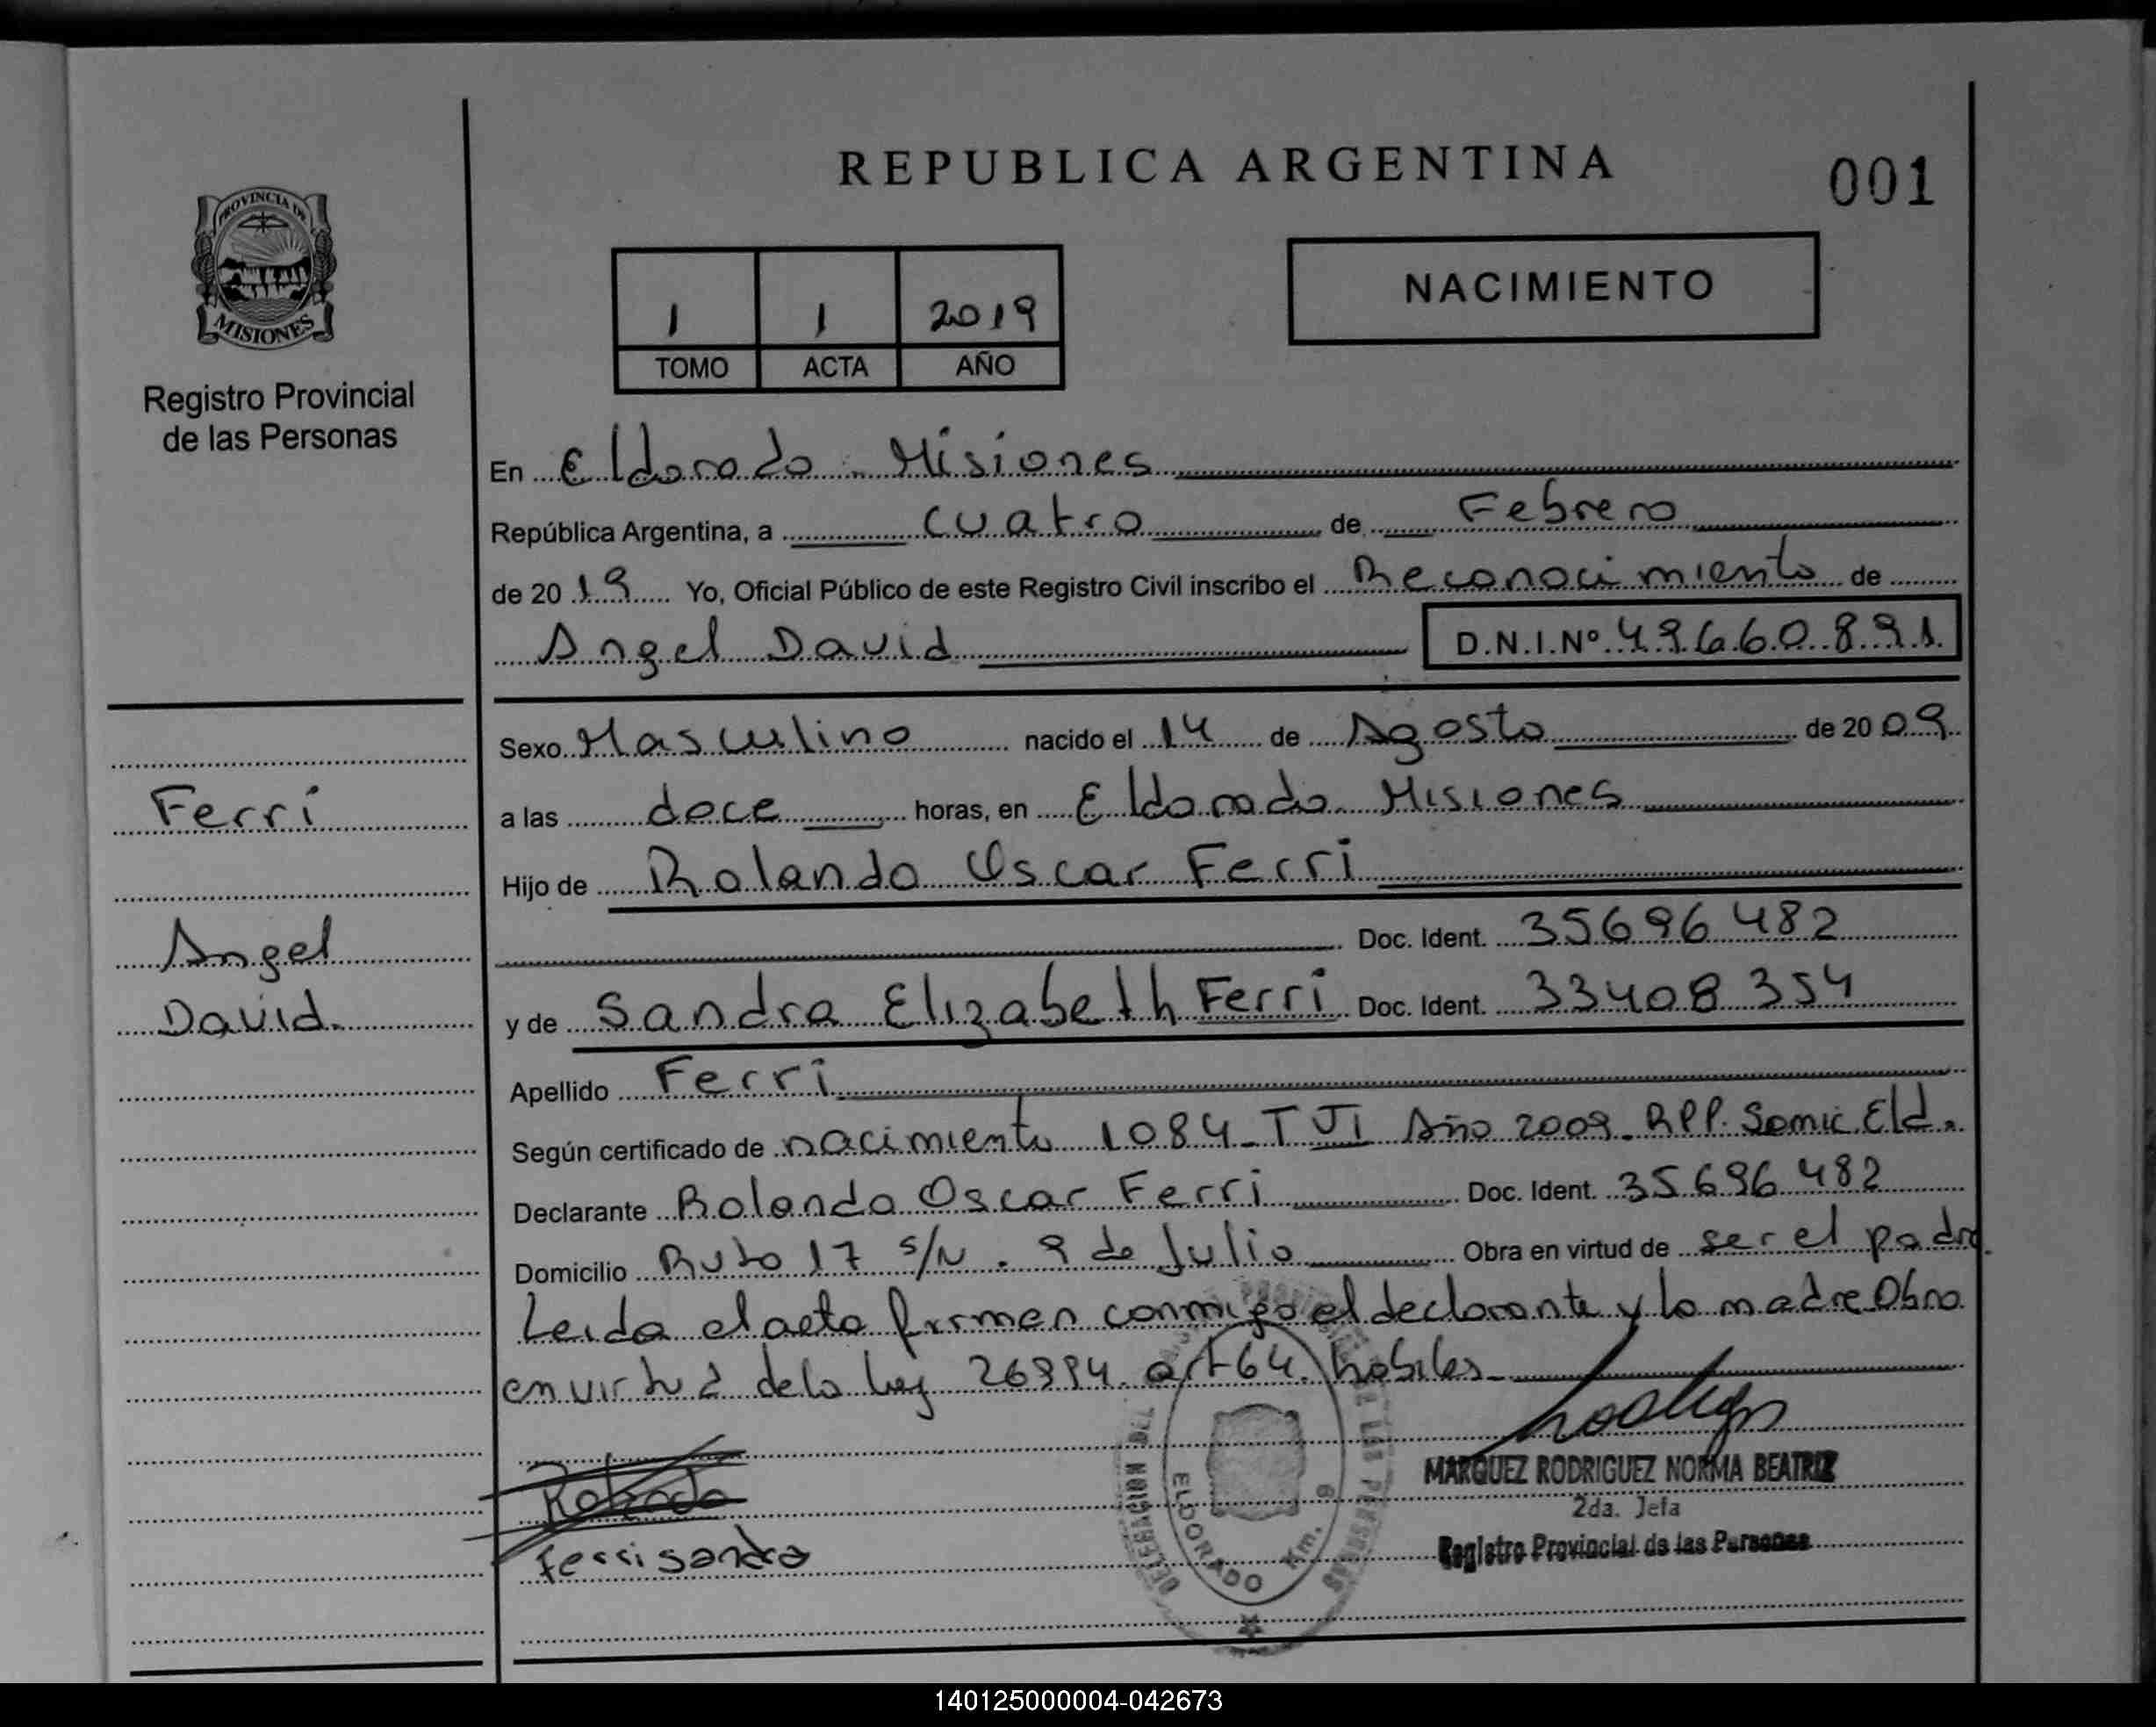 REPUBLICA ARGENTINA
001
PROVINCIA DE
MISIONES
Registro Provincial
de las Personas
1 1 2019
TOMO ACTA AÑO
NACIMIENTO
En Eldorado Misiones
República Argentina, a cuatro de Febrero
de 2019 Yo, Oficial Público de este Registro Civil inscribo el Reconocimiento de
Angel David D.N.I.Nº 49660891
Sexo Masculino nacido el 14 de Agosto de 2009
a las doce horas, en Eldorado Misiones
Hijo de Rolando Oscar Ferri
Doc. Ident. 35696482
y de Sandra Elizabeth Ferri Doc. Ident. 33408354
Apellido Ferri
Según certificado de nacimiento 1084 - T VI Año 2009. RPP. Samic Eld.
Declarante Rolando Oscar Ferri Doc. Ident. 35696482
Domicilio Ruta 17 s/N. 9 de Julio Obra en virtud de ser el padre
Leida el acta firman conmigo el declarante y la madre Obra
en virtud de la ley 26994. art 64. habiles
Ferri
Angel
David.
Rolando
Ferri sandra
DELEGACION DEL
DE LAS PERSONAS
ELDORADO Km. 9
MARQUEZ RODRIGUEZ NORMA BEATRIZ
2da. Jefa
Registro Provincial de las Personas
140125000004-042673